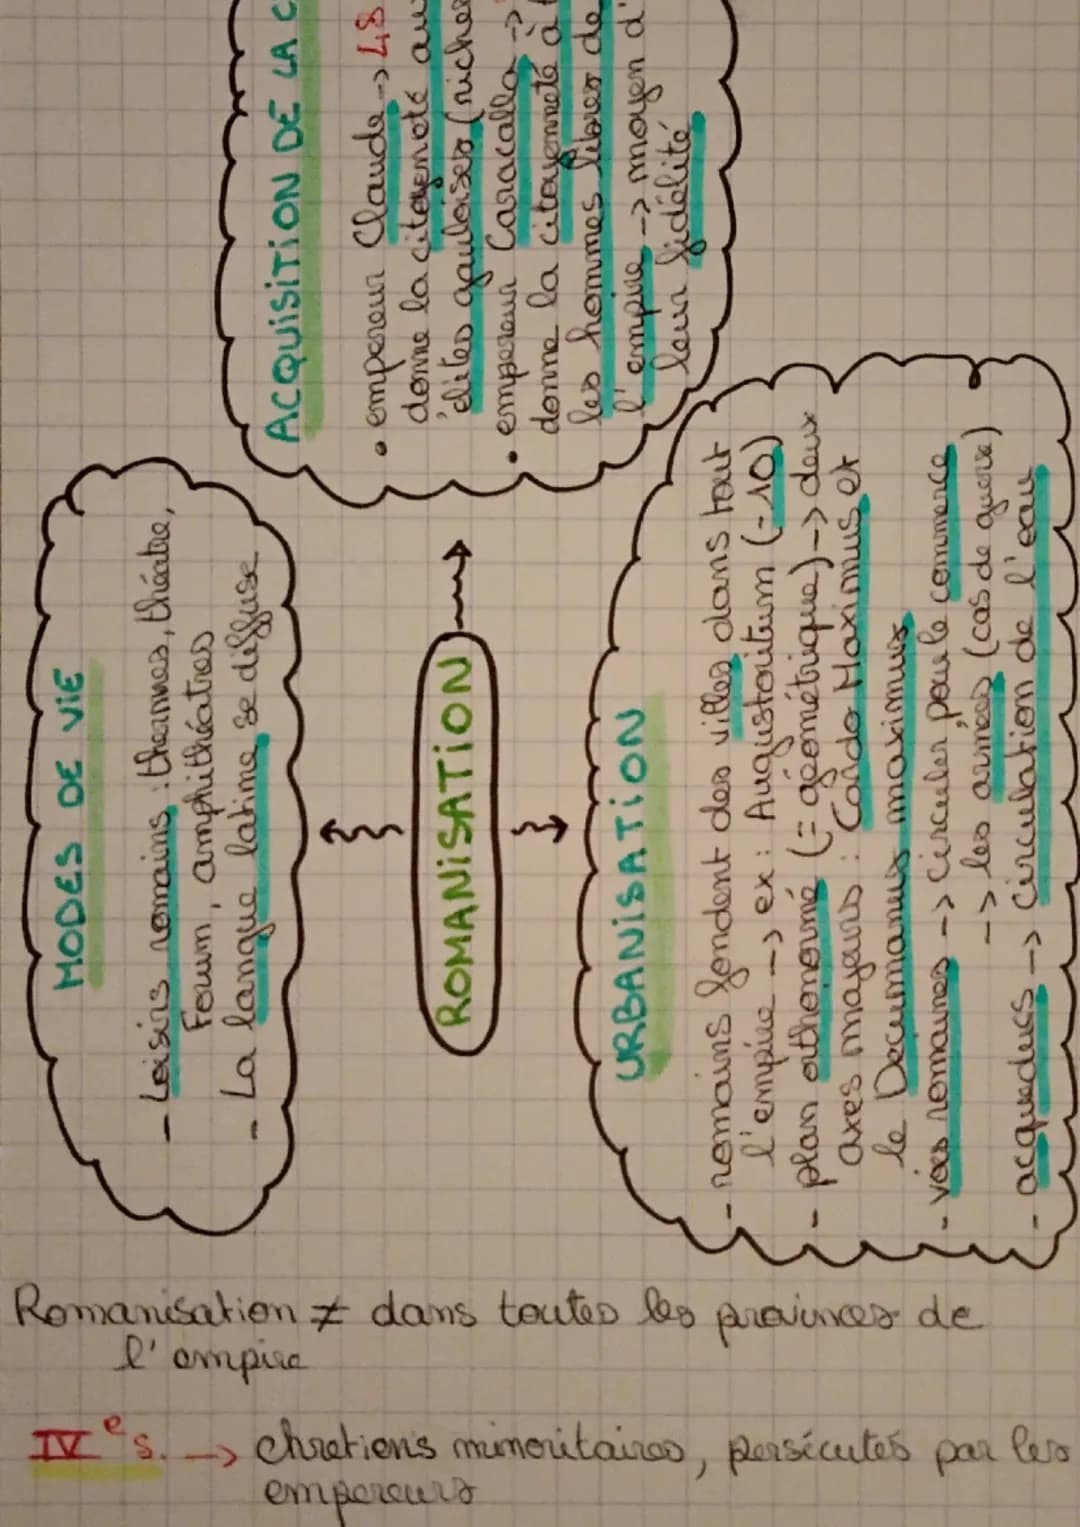 MODES DE VIE
- Loisirs romains : thermes, théatre,
Forum, amphithéatres
- La langue latine se diffuse
ROMANISATION
ACQUISITION DE LA C
• empereur Claude -> 48
donne la citoyenneté au
élites gauloises (riches
• empereur Caracalla ->
donne la citoyenneté à t
les hommes libres de
l'empire -> moyen d'
leur fidélité
URBANISATION
- romains fondent des villes dans tout
l'empire -> ex : Augustoritum (-10)
- plan orthonormé (= géométrique) -> deux
axes majeurs : Cardo Maximus et
le Decumanus maximus
- voies romaines -> circuler, pour le commerce
-> les armées (cas de guerre)
- acqueducs -> circulation de l'eau
Romanisation ≠ dans toutes les provinces de
l'empire
IVe s. -> chretiens minoritaires, persécutés par les
empereurs